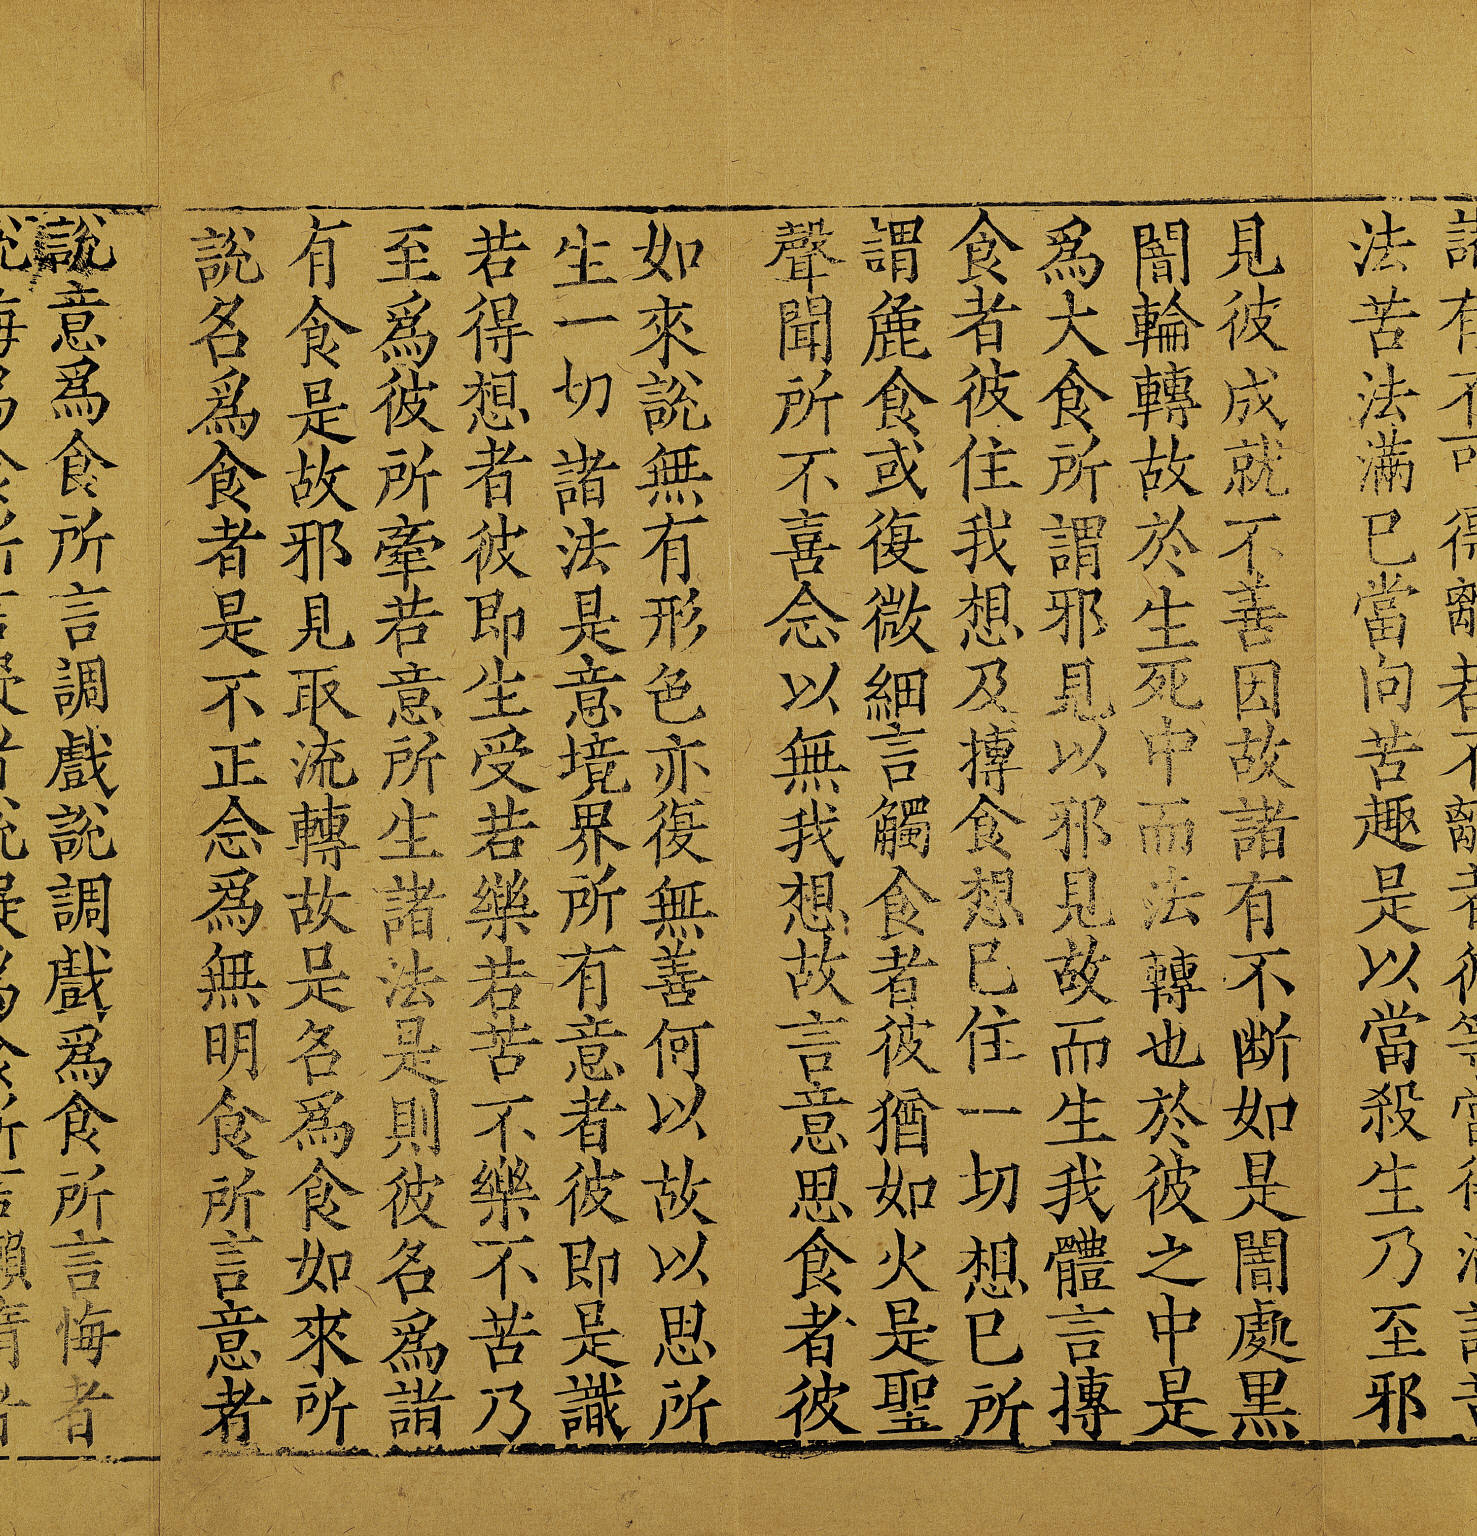 諸有不可得離者不離者彼等當得滿諸苦
法苦法滿已當向苦趣是以當殺生乃至邪
見彼成就不善因故諸有不断如是闇處黑
闇輪轉故於生死中而法轉也於彼之中是
為大食所謂邪見以邪見故而生我體言摶
食者彼住我想及摶食想已住一切想已所
謂麁食或復微細言觸食者彼猶如火是聖
聲聞所不喜念以無我想故言意思食者彼
如來說無有形色亦復無善何以故以思所
生一切諸法是意境界所有意者彼即是識
若得想者彼即生受若樂若苦不樂不苦乃
至爲彼所牽若意所生諸法是則彼名爲諸
有食是故邪見取流轉故是名爲食如來所
說名爲食者是不正念爲無明食所言意者
說意爲食所言調戲說調戲爲食所言悔者
說悔爲食所言疑者說疑爲食所言嬾惰者